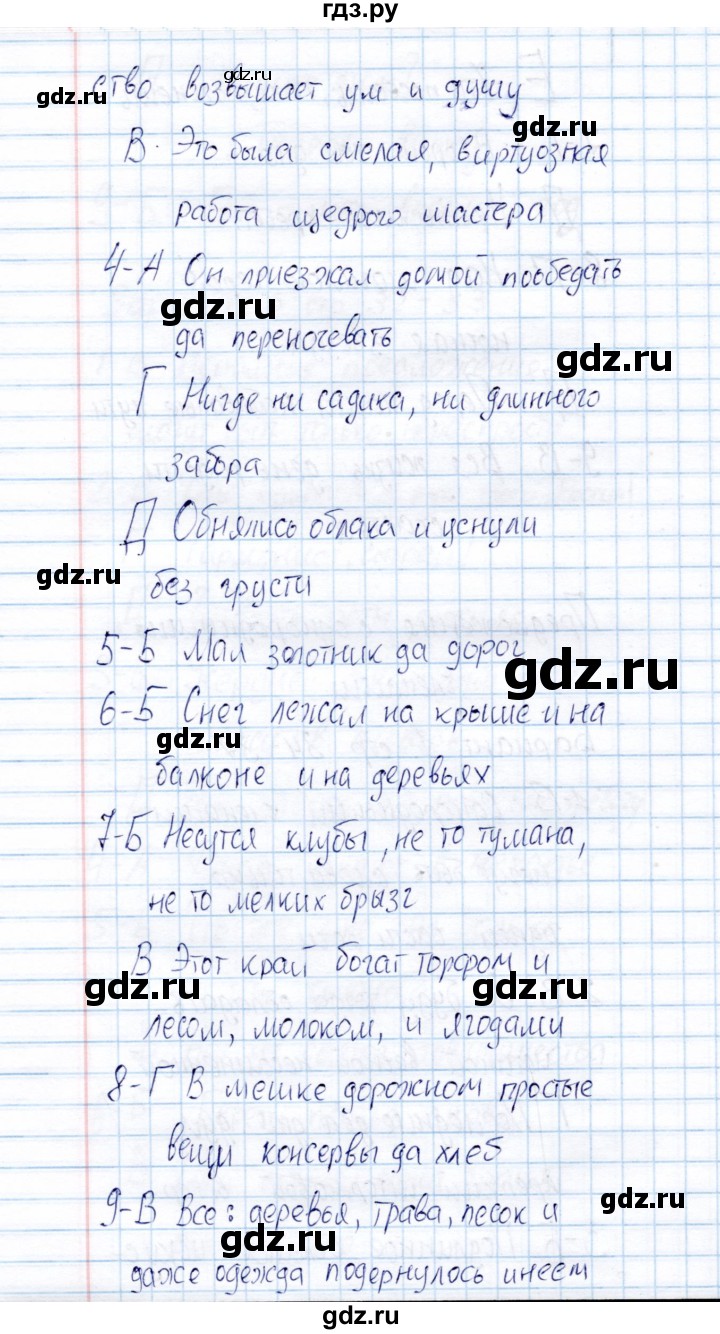 гдз.ру
ство возвышает ум и душу
gdz.ru
gdz.ru
gdz.ru
В. Это была смелая, виртуозная
работа щедрого мастера
4-А Он приезжал домой пообедать
gdz.ru
да переночевать
gdz.ru
Г Нигде ни садика, ни длинного
забора
Д Обнялись облака и уснули
gdz.ru
без грусти
5-Б Мал золотник да дорог
gdz.ru
6-Б Снег лежал на крыше и на
gdz.ru
балконе и на деревьях
7-Б Несутся клубы, не то тумана,
не то мелких брызг
В Этот край богат торфом и
gdz.ru
gdz.ru
лесом, молоком, и ягодами
8-Г В мешке дорожном простые
вещи консервы да хлеб
gdz.ru
9-В Все: деревья, трава, песок и
gdz.ru
даже одежда подернулось инеем
gdz.ru